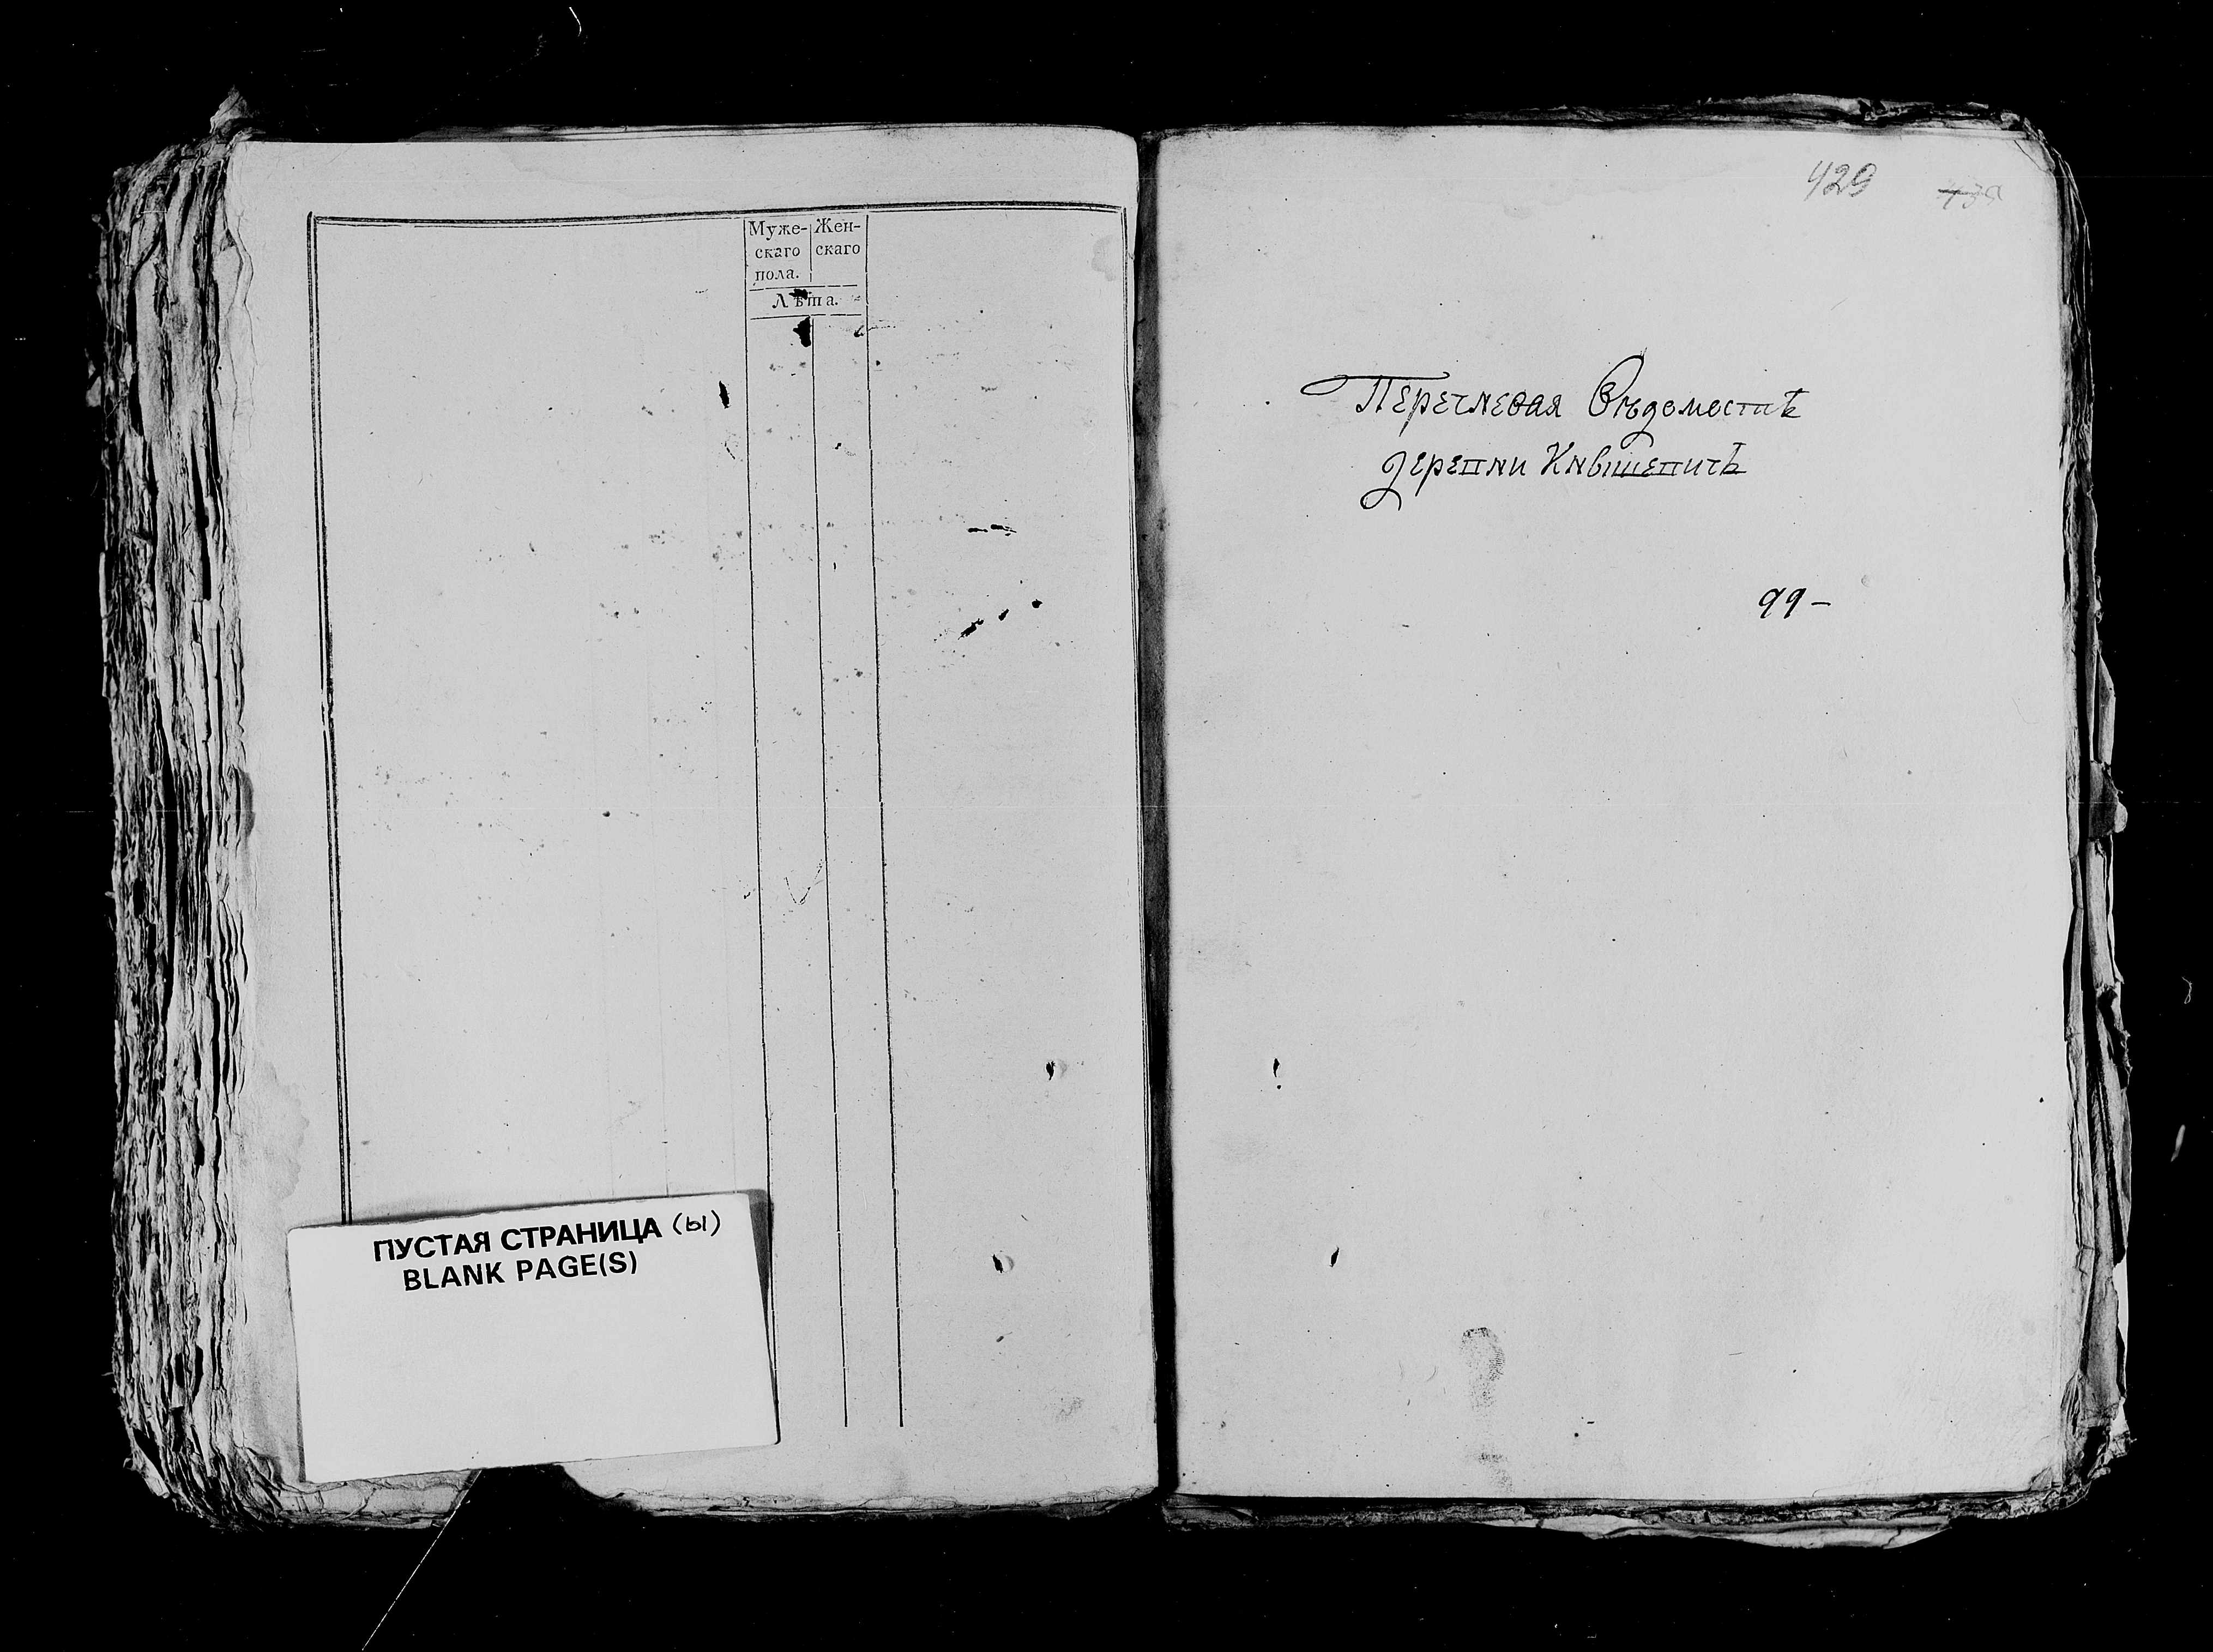 Муже-
скаго
пола.
Жен-
скаго
Лѣта.
ПУСТАЯ СТРАНИЦА (Ы)
BLANK PAGE(S)
429
Перечневая Вѣдомость
деревни
99-